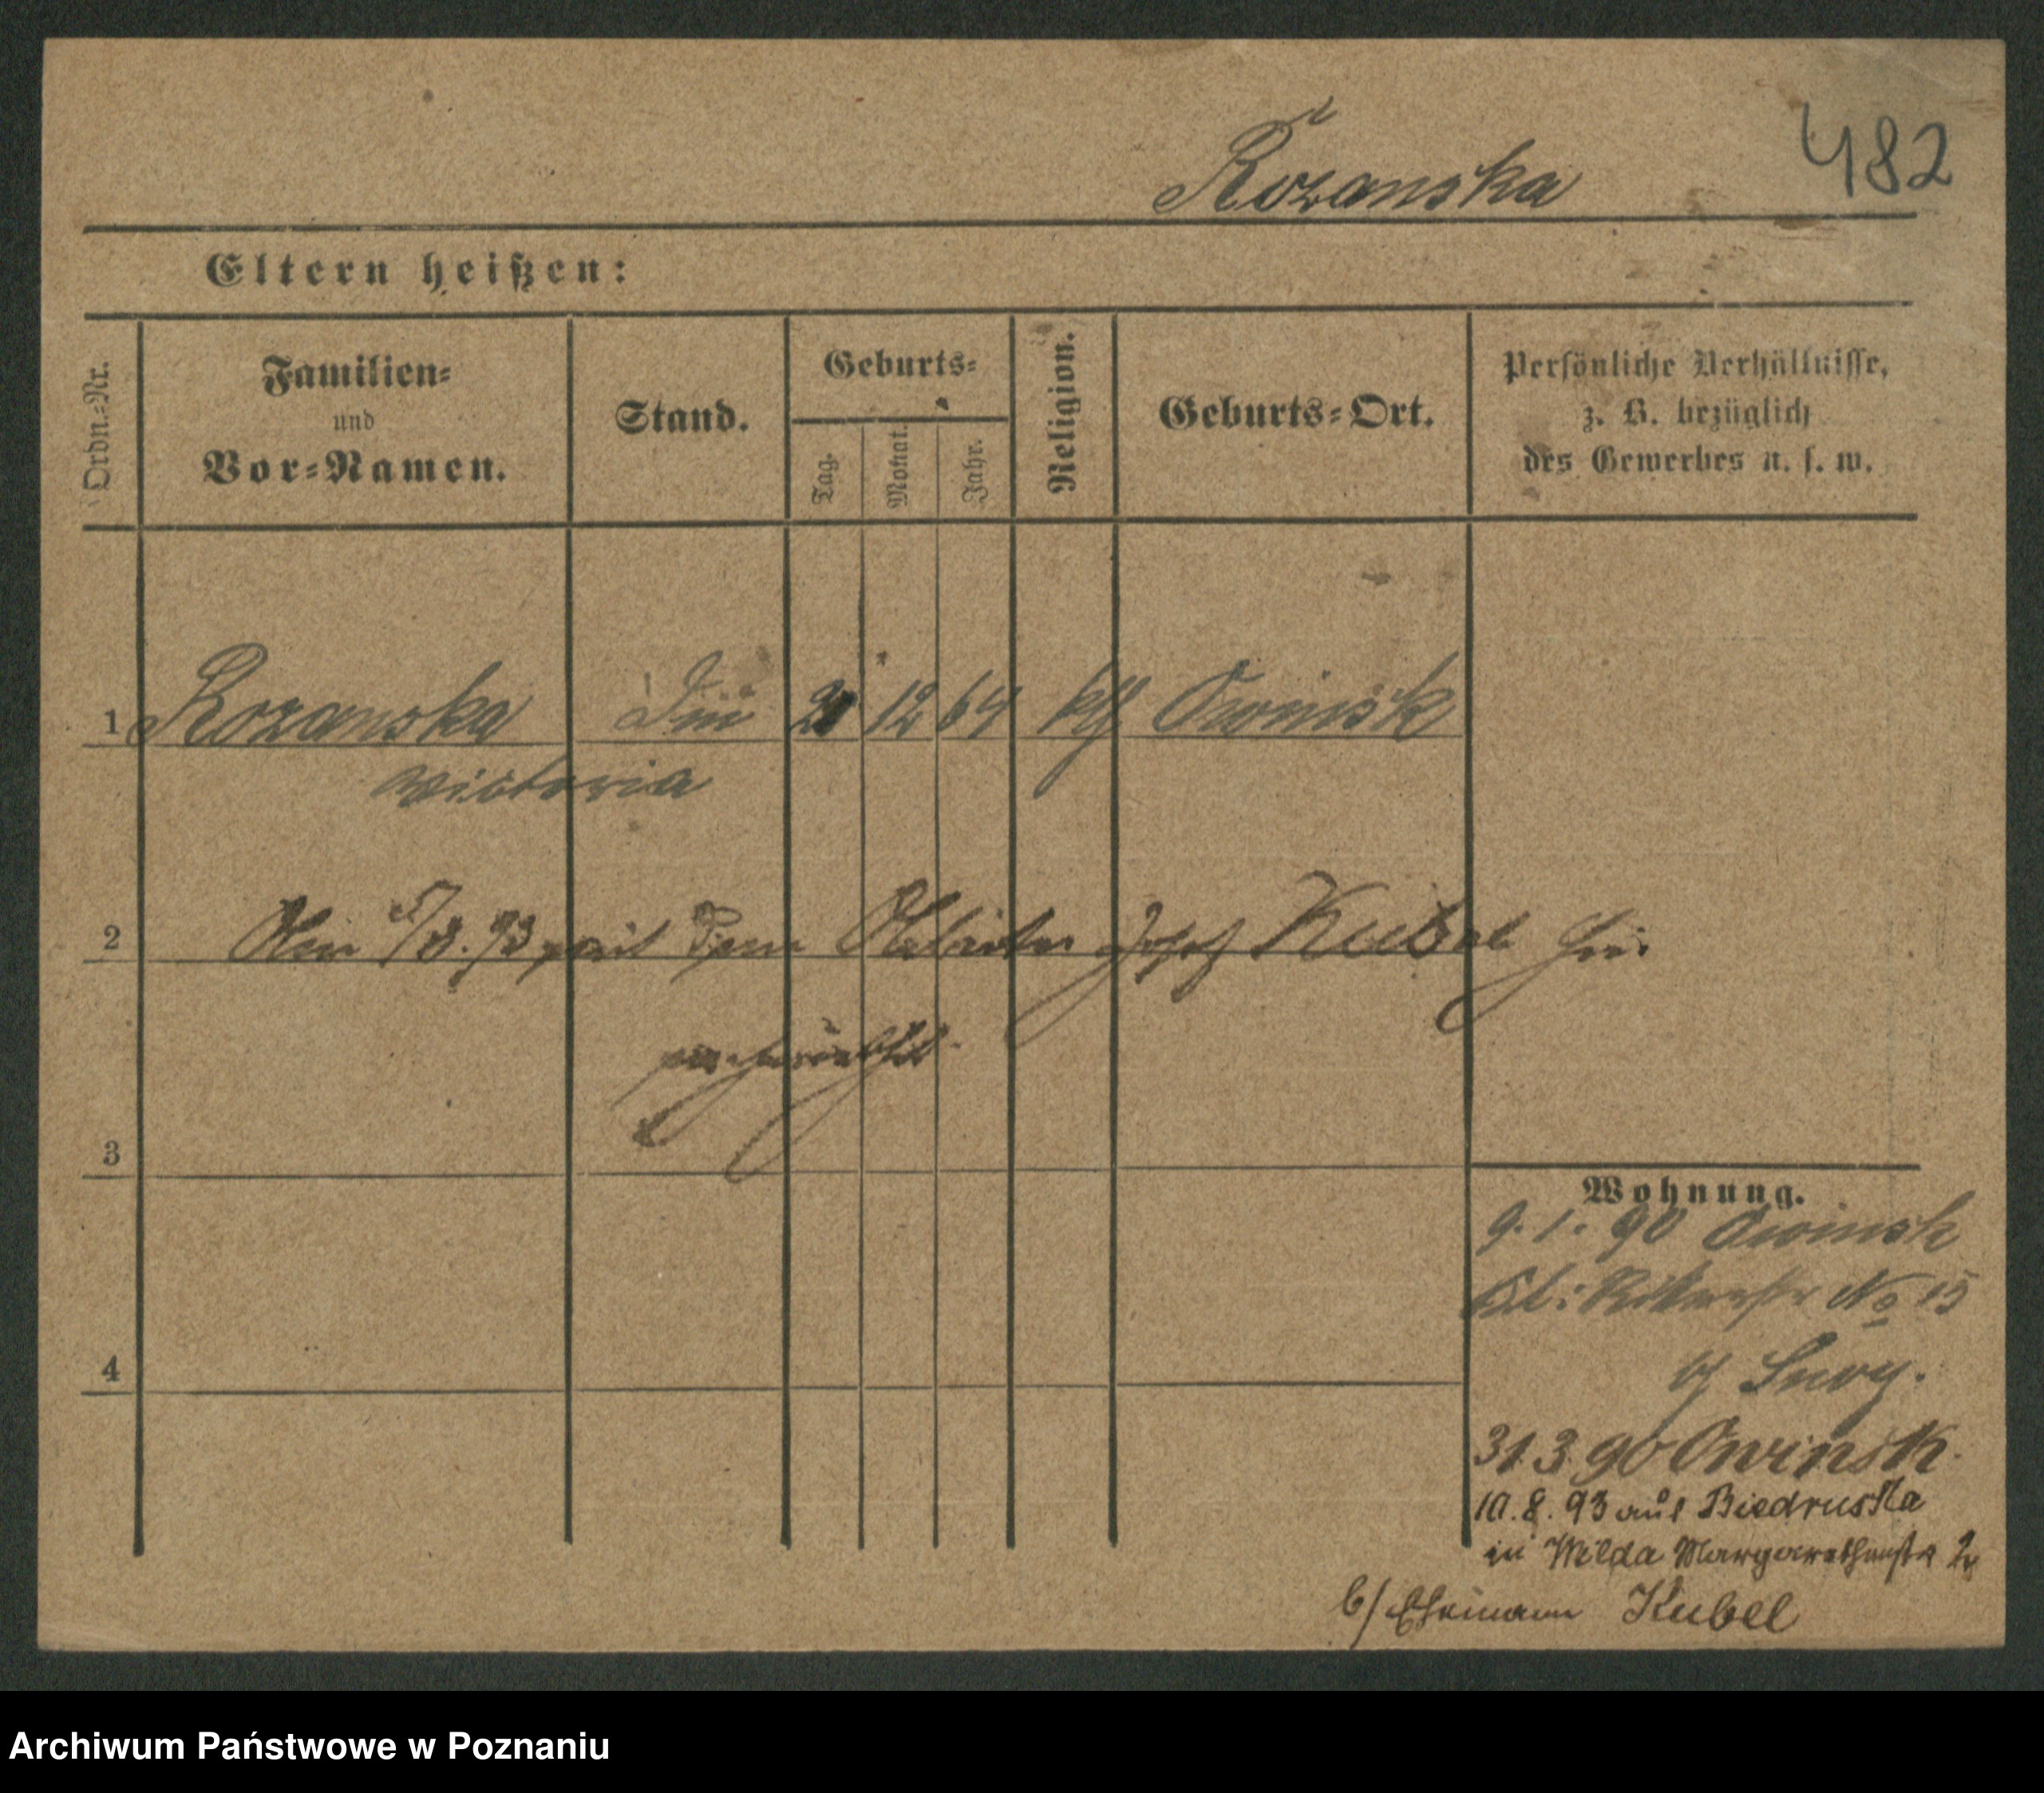 Rozanska
482
Eltern heißen:
Ordn.=Nr.
Familien=
und
Vor=Namen.
Stand.
Geburts=
Tag.
Monat.
Jahr.
Religion.
Geburts=Ort.
Persönliche Verhältnisse,
z. B. bezüglich
des Gewerbes u. s. w.
1 Rozanska 12 64 kth Owinsk
Victoria
2 Am 5/8.93 mit dem Arbeiter Josef Kubel hier
3
Wohnung.
9.1.90 Owinsk
No 15
b/
4
31.3.90 Owinsk.
10.8.93 aus Biedruska
in Wilda Margarethenstr 2
b/ Ehemann Kubel
Archiwum Państwowe w Poznaniu